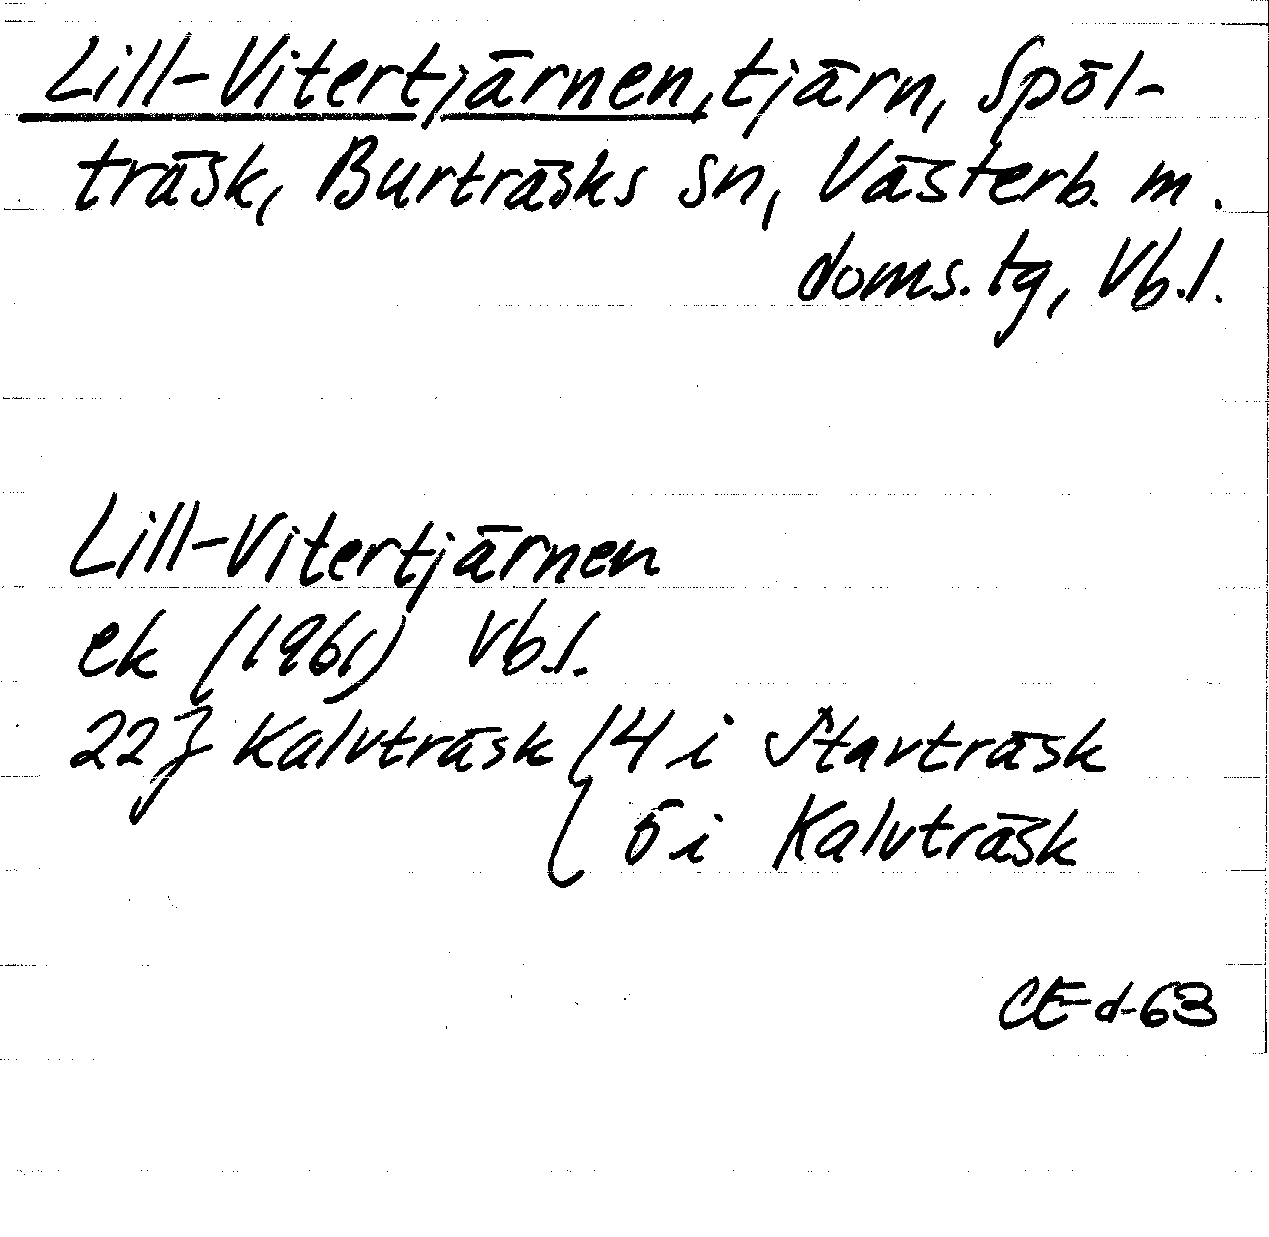 Lill-Vitertjärnen, tjärn, Spöl-
träsk, Burträsks sn, Västerb. m.
doms.tg, Vb.l.
Lill-Vitertjärnen
ek (1961) Vb.l.
22J Kalvträsk { 4 i Stavträsk
5 i Kalvträsk
CE-d-63